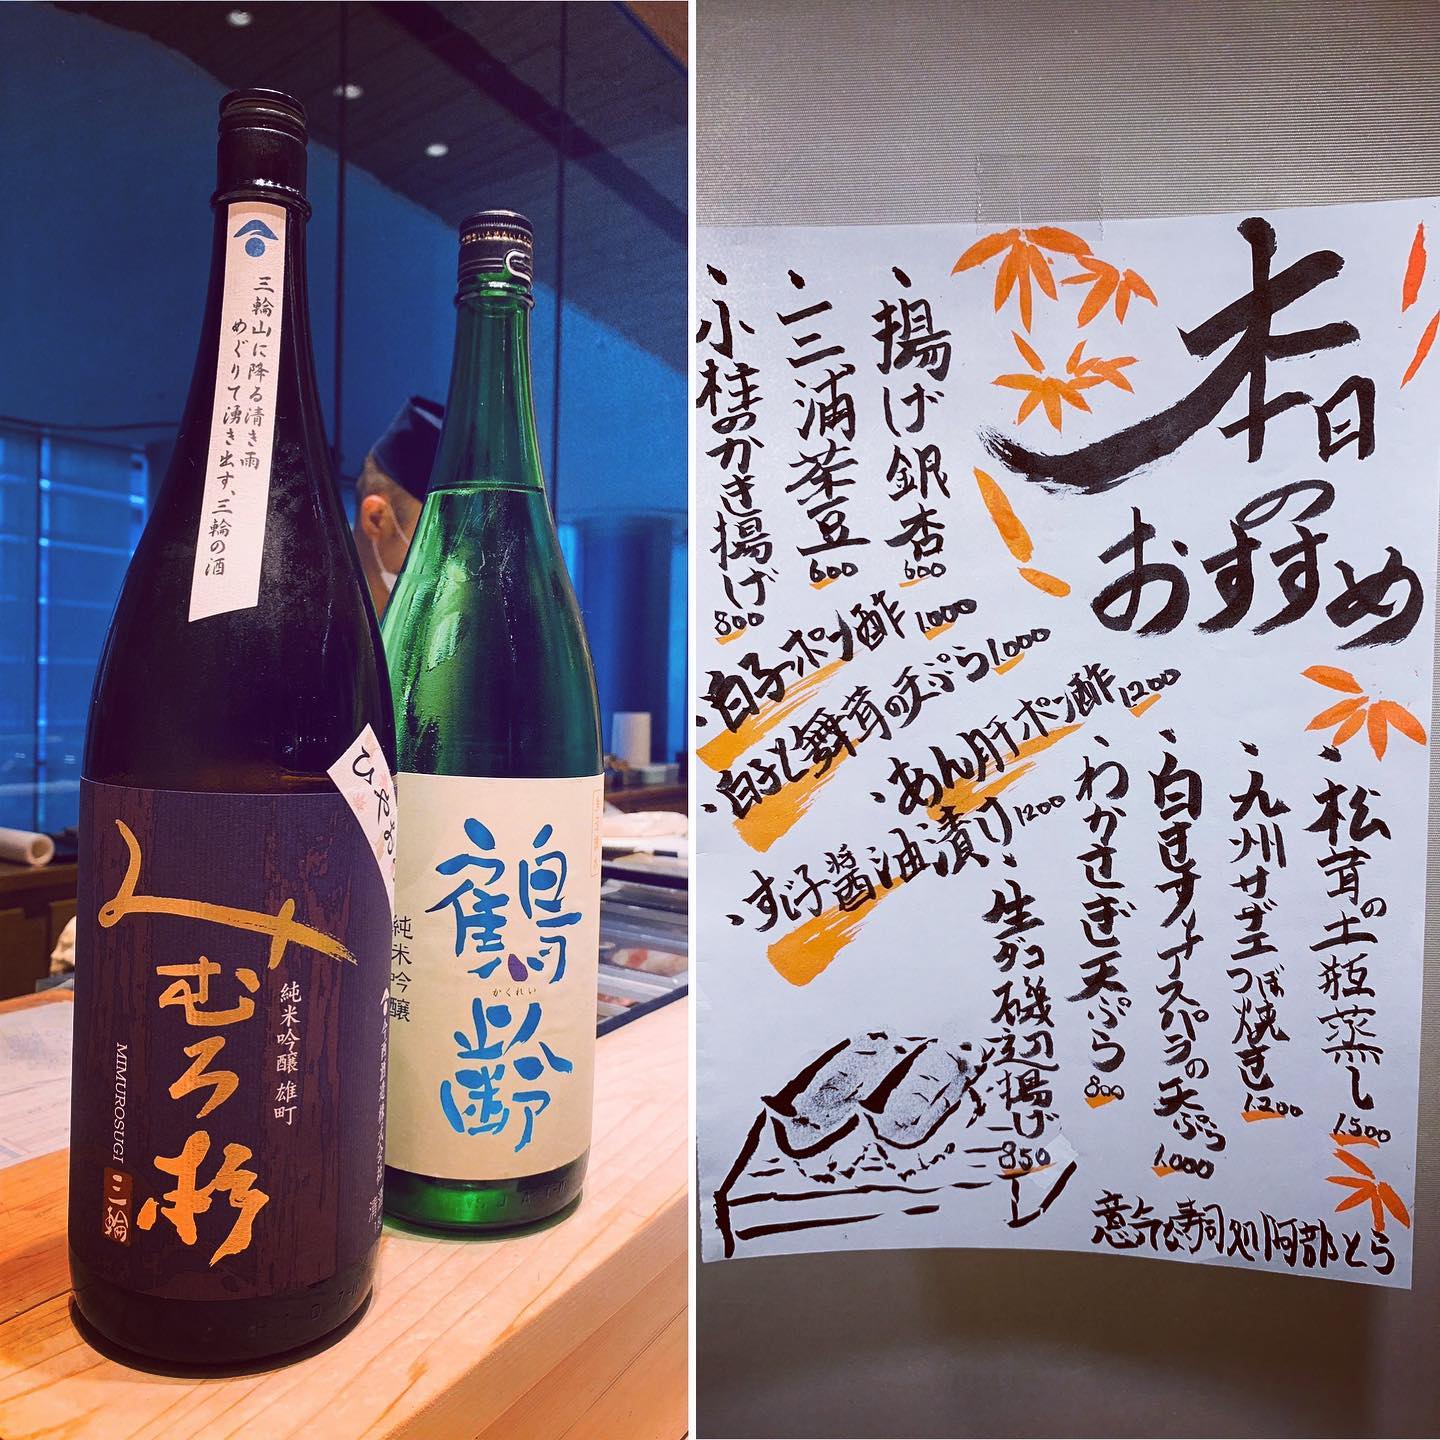 三輪山に降る清き雨
めぐりて湧き出す、三輪の酒
ひやお
みむろ杉
純米吟醸 雄町
MIMUROSUGI
三輪
鶴齢
かくれい
純米吟醸
本日
の
おすすめ
・揚げ銀杏 600
・三浦茶豆 600
・小柱のかき揚げ 800
・白子ポン酢 1000
・白子と舞茸の天ぷら 1.000
・あん肝ポン酢 1200
・すじ子醤油漬け 1200
・松茸の土瓶蒸し 1.500
・九州サザエつぼ焼き 1200
・白きす、アスパラの天ぷら 1.000
・わかさぎ天ぷら 800
・生ダコ磯辺揚げ 850
意気な寿司処阿部とら